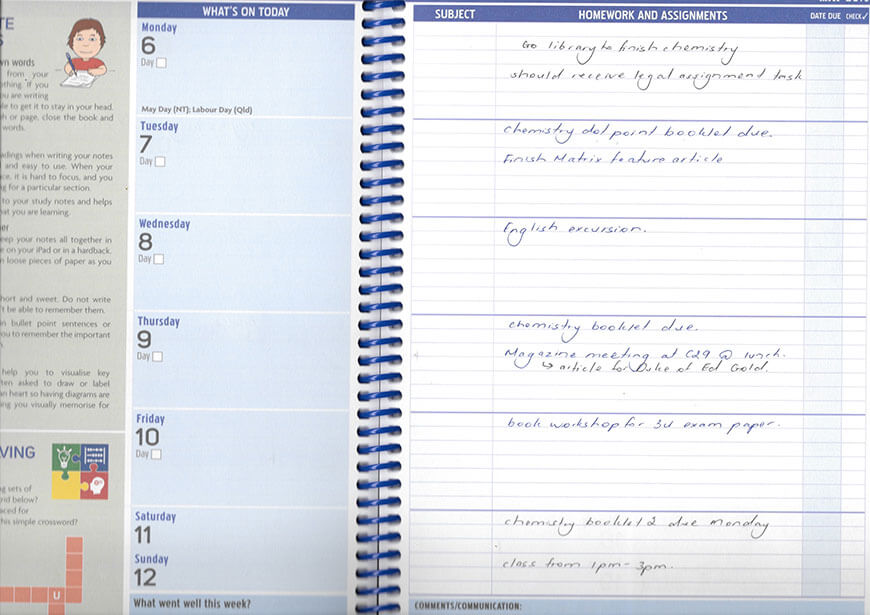 TE
S
wn words
from your
thing. If you
ou are writing
le to get it to stay in your head.
h or page, close the book and
words.
dings when writing your notes
and easy to use. When your
ce, it is hard to focus, and you
g for a particular section.
to your study notes and helps
at you are learning.
er
eep your notes all together in
e on your iPad or in a hardback.
n loose pieces of paper as you
hort and sweet. Do not write
't be able to remember them.
n bullet point sentences or
ou to remember the important
help you to visualise key
ten asked to draw or label
n heart so having diagrams are
ing you visually memorise for
VING
g sets of
rid below?
aced for
his simple crossword?
U
WHAT'S ON TODAY
Monday
6
Day
May Day (NT); Labour Day (Qld)
Tuesday
7
Day
Wednesday
8
Day
Thursday
9
Day
Friday
10
Day
Saturday
11
Sunday
12
What went well this week?
SUBJECT HOMEWORK AND ASSIGNMENTS DATE DUE CHECK✓
Go library to finish chemistry
should receive legal assignment task
chemistry dot point booklet due.
Finish Matrix feature article
English excursion.
chemistry booklet due.
Magazine meeting at C29 @ lunch.
↳ article for Duke of Ed Gold.
book workshop for 3U exam paper.
chemistry booklet 2 due monday
class from 1pm - 3pm.
COMMENTS/COMMUNICATION: